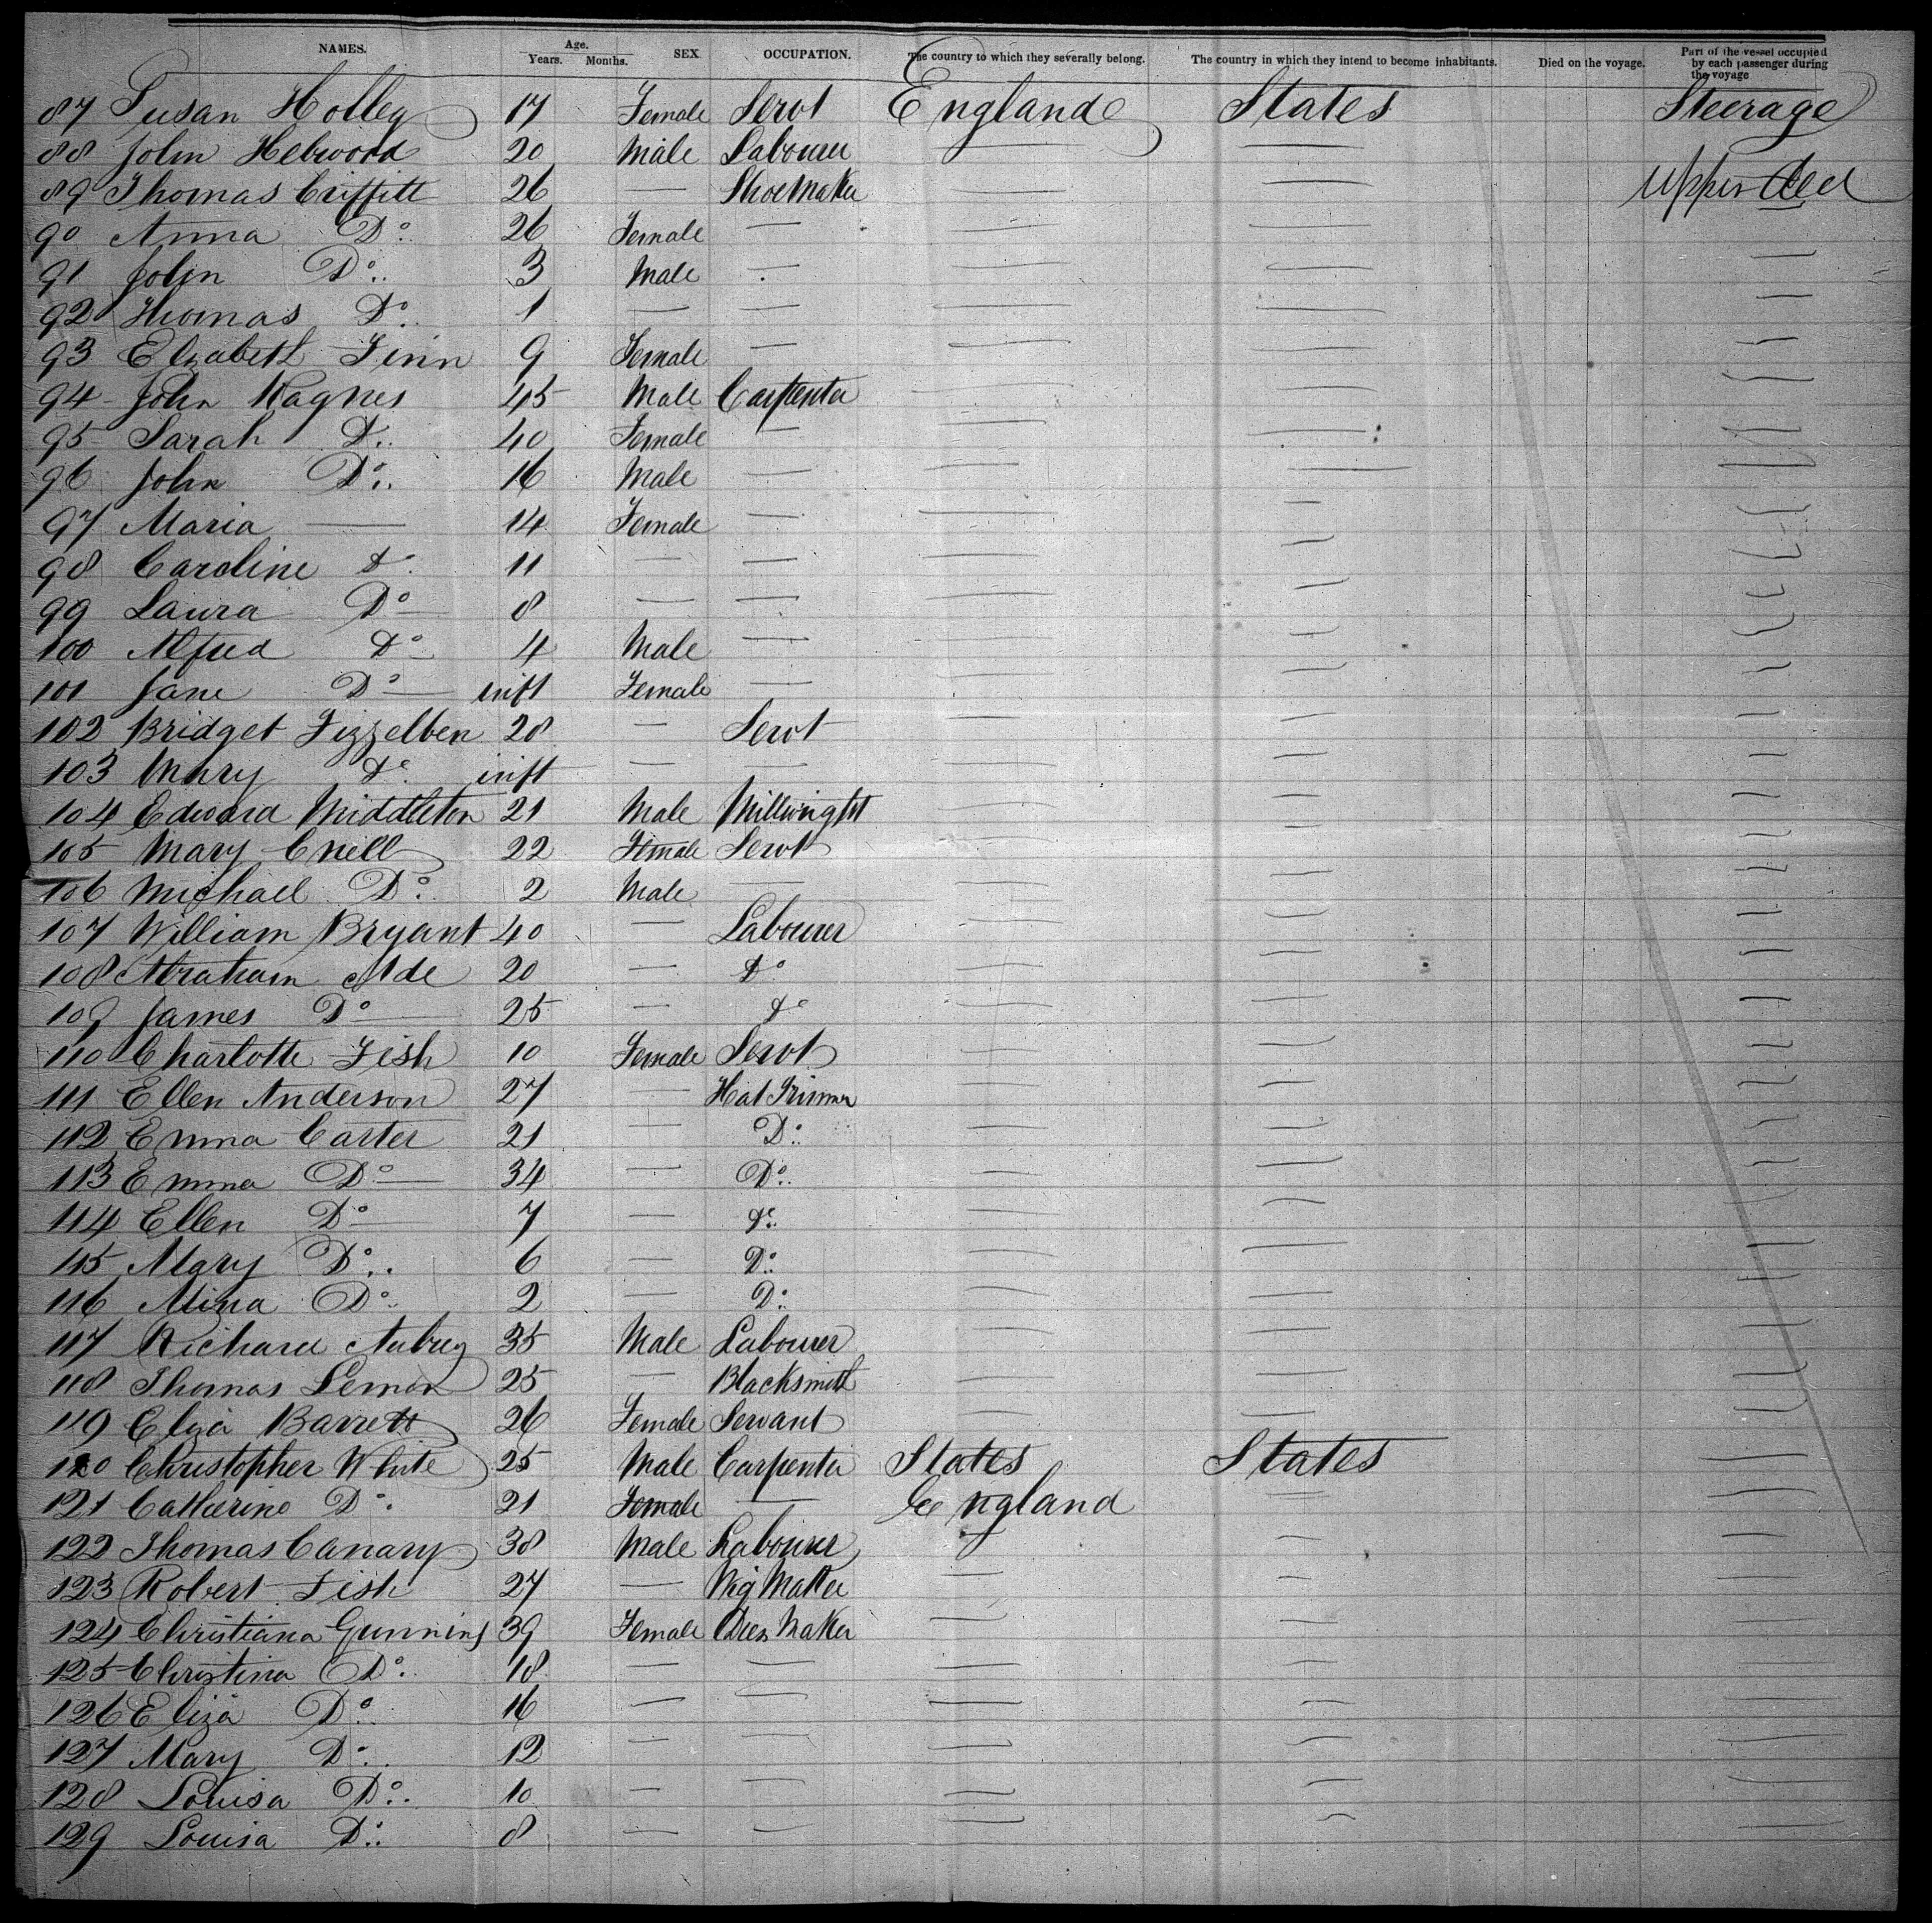 NAMES. Age. Years. Months. SEX OCCUPATION. The country to which they severally belong. The country in which they intend to become inhabitants. Died on the voyage. Part of the vessel occupied by each passenger during the voyage
87 Susan Holley 17 Female Servt England States Steerage
88 John Helwood 20 Male Labourer — —
89 Thomas Griffitt 26 — Shoe Maker — — Upper
90 Anna Do 26 Female — — —
91 John Do 3 Male — — — —
92 Thomas Do 1 — — — — —
93 Elzabeth Finn 9 Female — — — —
94 John Wagnes 45 Male Carpenter — — —
95 Sarah Do 40 Female — — — —
96 John Do 16 Male — — — —
97 Maria — 14 Female — — — —
98 Caroline Do 11 — — — — —
99 Laura Do 8 — — — — —
100 Alfred Do 4 Male — — — —
101 Jane Do inft Female — — — —
102 Bridget Fizzelben 28 — Servt — — —
103 Mary Do inft — — — — —
104 Edward Middleton 21 Male Millwright — — —
105 Mary Cnell 22 Female Servt — — —
106 Michael Do 2 Male — — — —
107 William Bryant 40 — Labourer — — —
108 Abraham Ade 20 — Do — — —
109 James Do 25 — Do — — —
110 Charlotte Fish 10 Female Servt — — —
111 Ellen Anderson 27 — Hat Trimmer — — —
112 Emma Carter 21 — Do — — —
113 Emma Do 34 — Do — — —
114 Ellen Do 7 — Do — — —
115 Mary Do 6 — Do — — —
116 Mina Do 2 — Do — — —
117 Richard Aubrey 35 Male Labourer — — —
118 Thomas Lemon 25 — Blacksmith — — —
119 Eliza Barrett 26 Female Servant — — —
120 Christopher White 25 Male Carpenter States States —
121 Catherine Do 21 Female — England — —
122 Thomas Canary 38 Male Labourer — — —
123 Robert Fish 27 — Wig Maker — — —
124 Christiana Gunning 39 Female Dres Maker — — —
125 Christina Do 18 — — — — —
126 Eliza Do 16 — — — — —
127 Mary Do 12 — — — — —
128 Louisa Do 10 — — — — —
129 Louisa Do 8 — — — — —